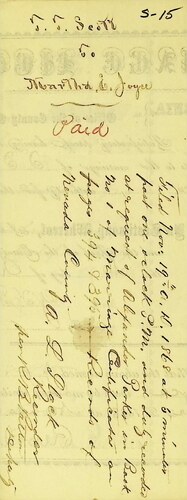 S-15
T. T. Scott
to
Martha E. Joyce
Paid
Filed Nov. 19th A.D. 1868 at 5 minutes
past one oclock P.M. and duly recorded
at request of in Book
No 1 of Marriage Certificates on
pages 394 & 395 Records of
Nevada County
A. L. Slack
Recorder